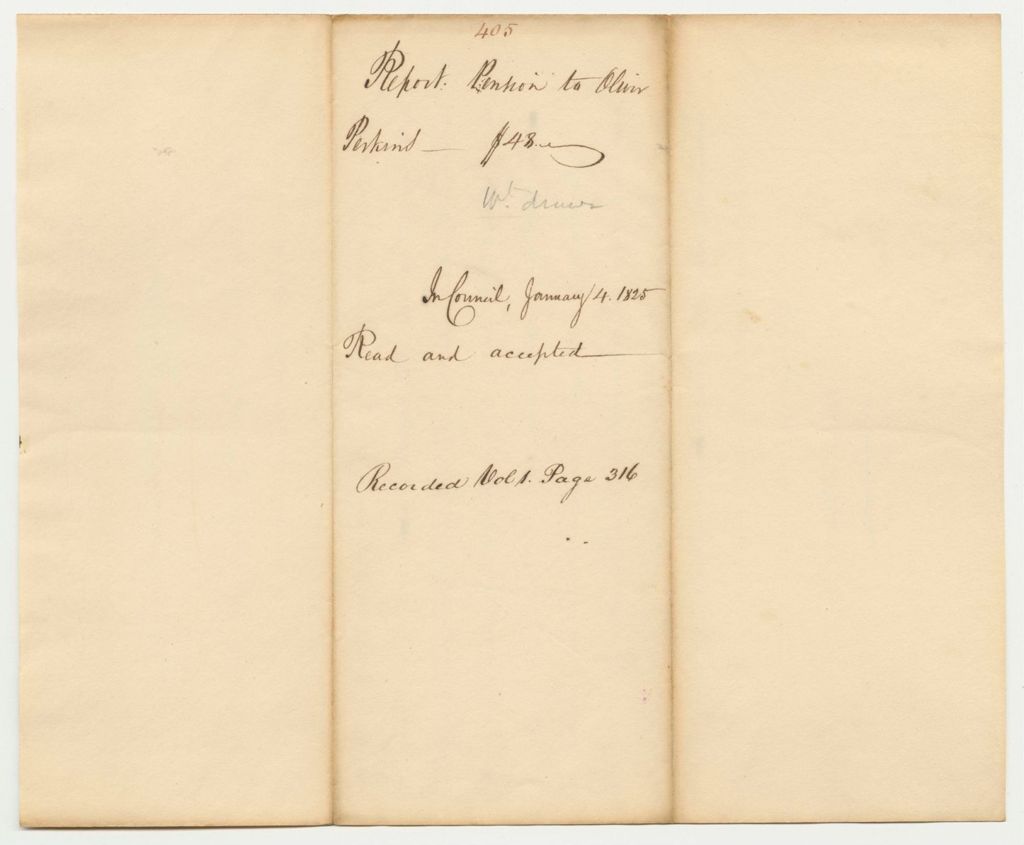 405
Report: Pension to Oliver
Perkins — $48.
Wt. drawn
In Council, January 4. 1825
Read and accepted
Recorded Vol 1. Page 316